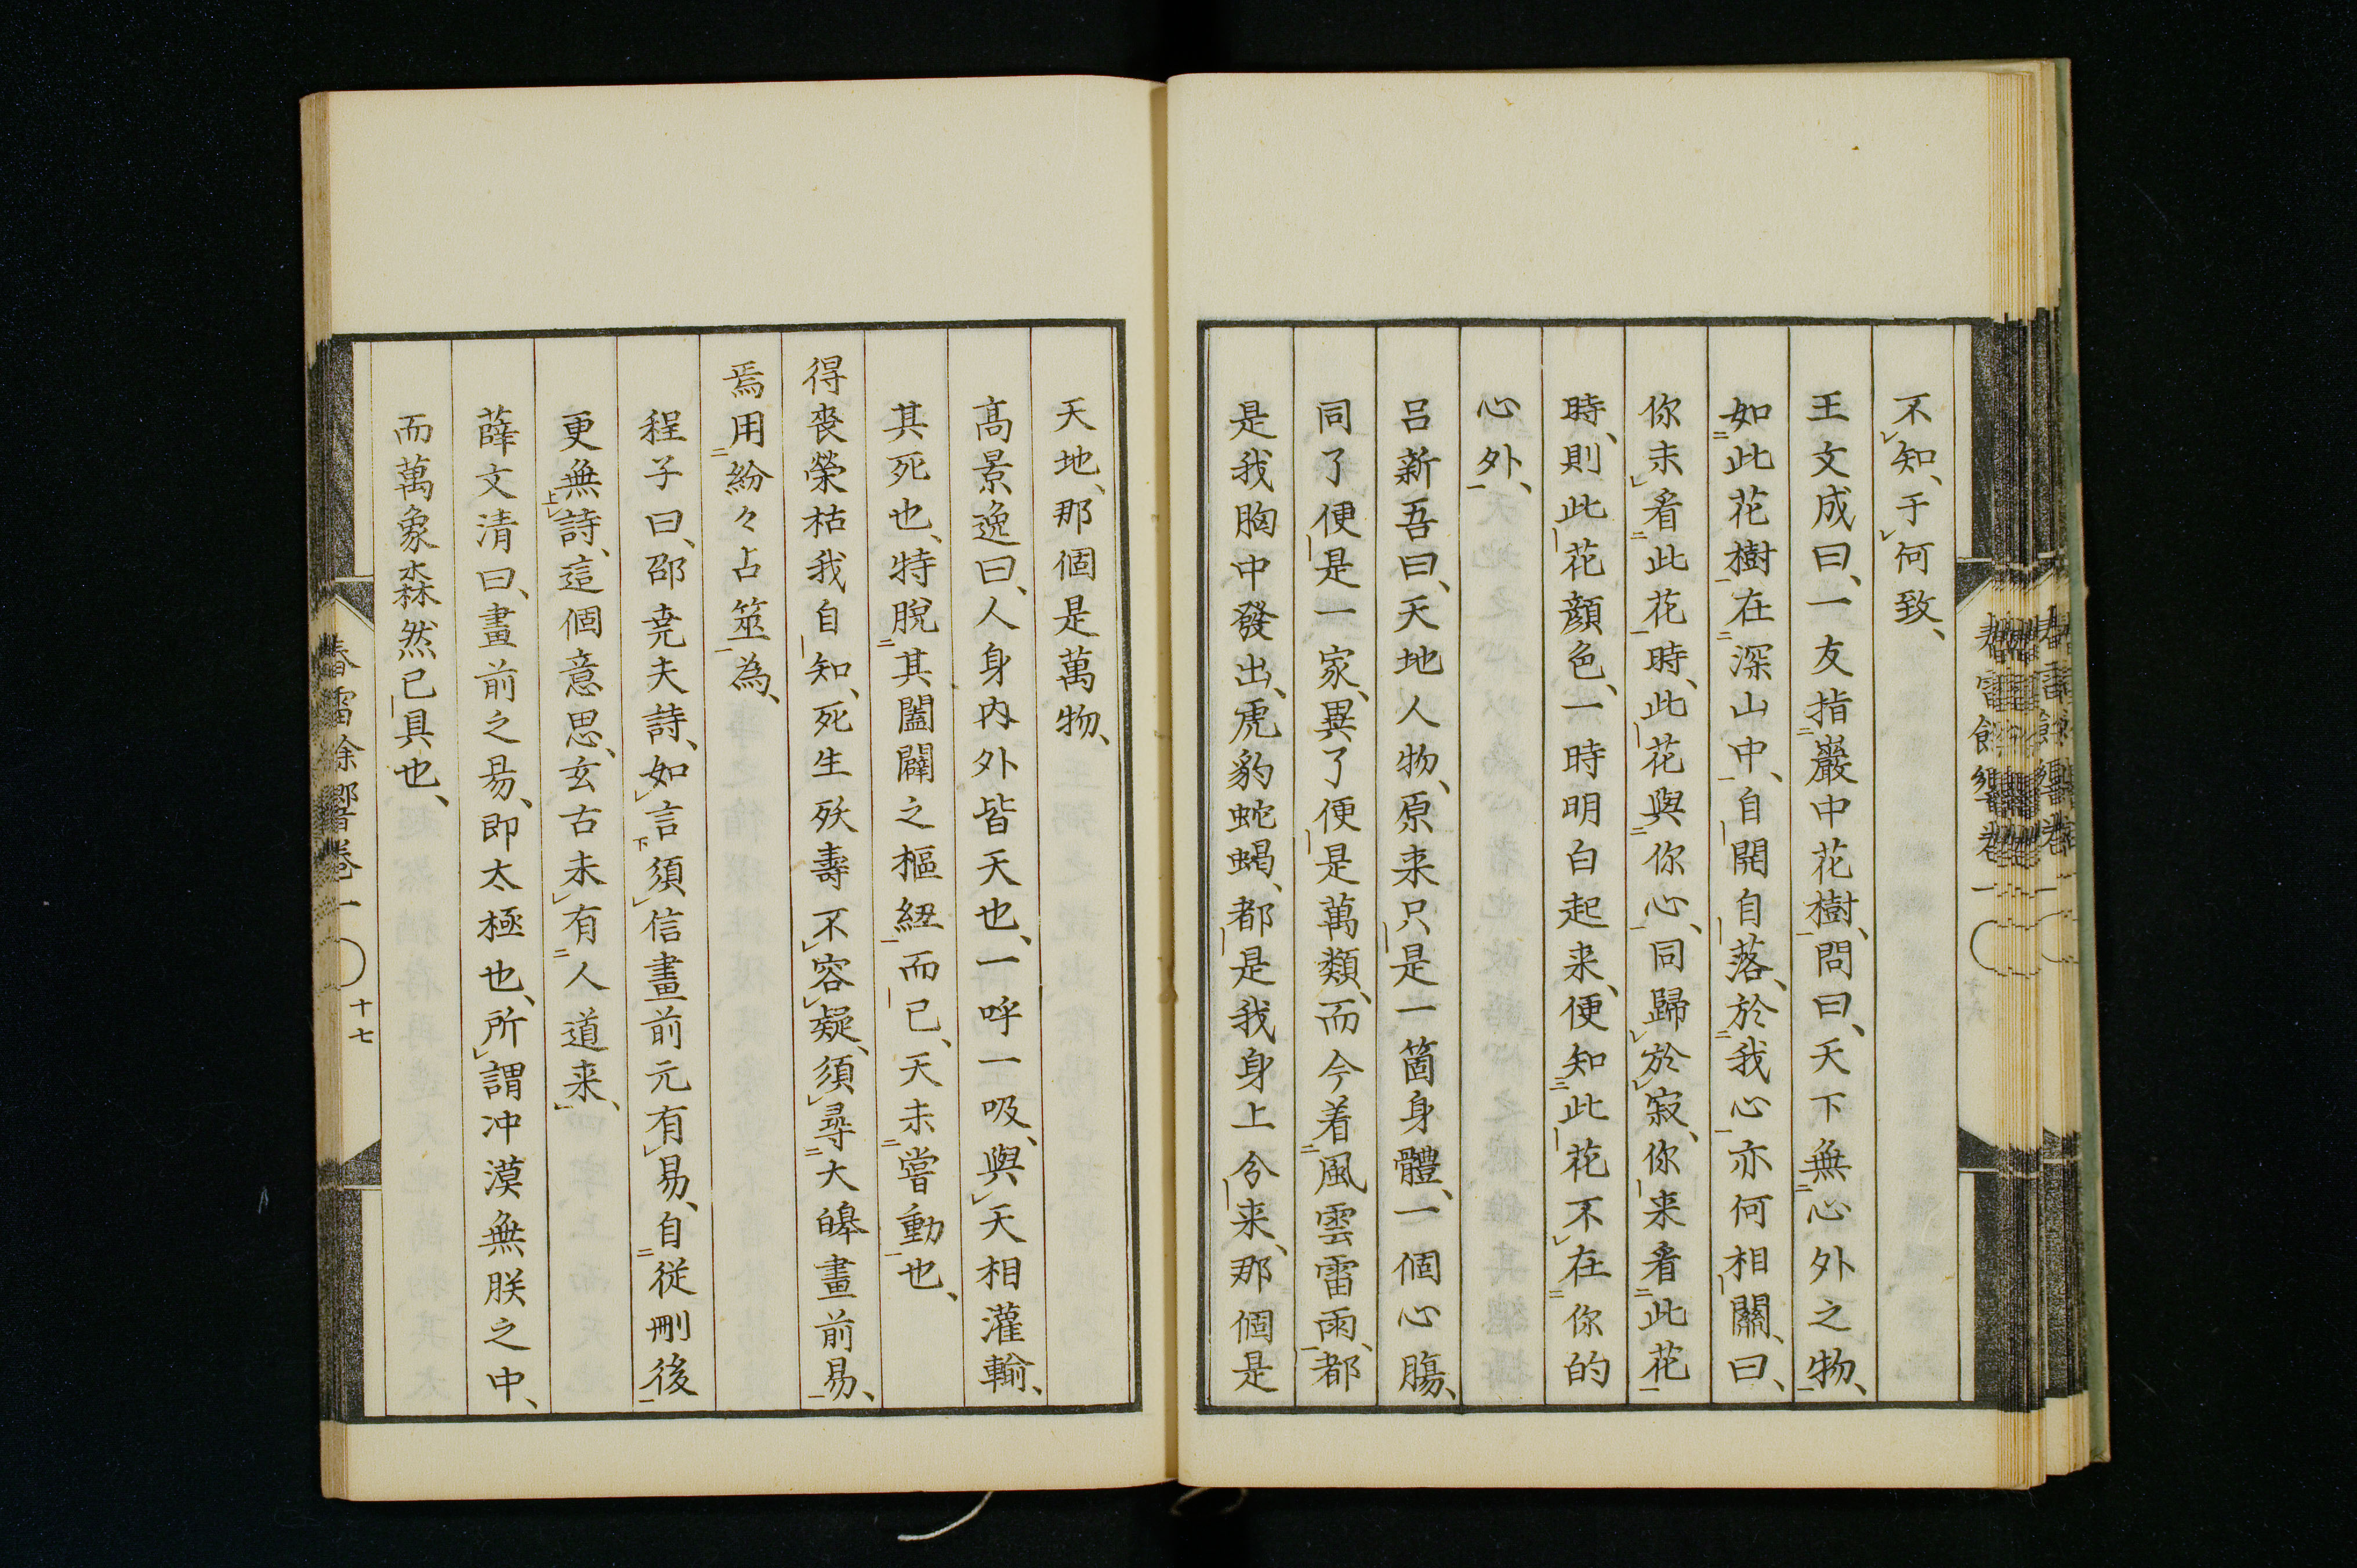 不知、于何致、
王文成曰、一友指巖中花樹、問曰、天下無心外之物、
如此花樹在深山中、自開自落、於我心亦何相關、曰、
你未看此花時、此花與你心、同歸於寂、你来看此花
時、則此花顔色、一時明白起来、便知此花不在你的
心外、
呂新吾曰、天地人物、原来只是一箇身體、一個心膓、
同了便是一家、異了便是萬類、而今着風雲雷雨、都
是我胸中發出、虎豹蛇蝎、都是我身上分来、那個是
天地、那個是萬物、
髙景逸曰、人身内外皆天也、一呼一吸、與天相灌輸、
其死也、特脱其闔闢之樞紐而已、天未嘗動也、
得喪榮枯我自知、死生殀壽不容疑、須尋大皞畫前易、
焉用紛々占筮為、
程子曰、邵堯夫詩、如言須信畫前元有易、自従刪後
更無詩、這個意思、玄古未有人道来、
薛文清曰、畫前之易、即太極也、所謂冲漠無朕之中、
而萬象森然已具也、
春雷餘響卷一 十七